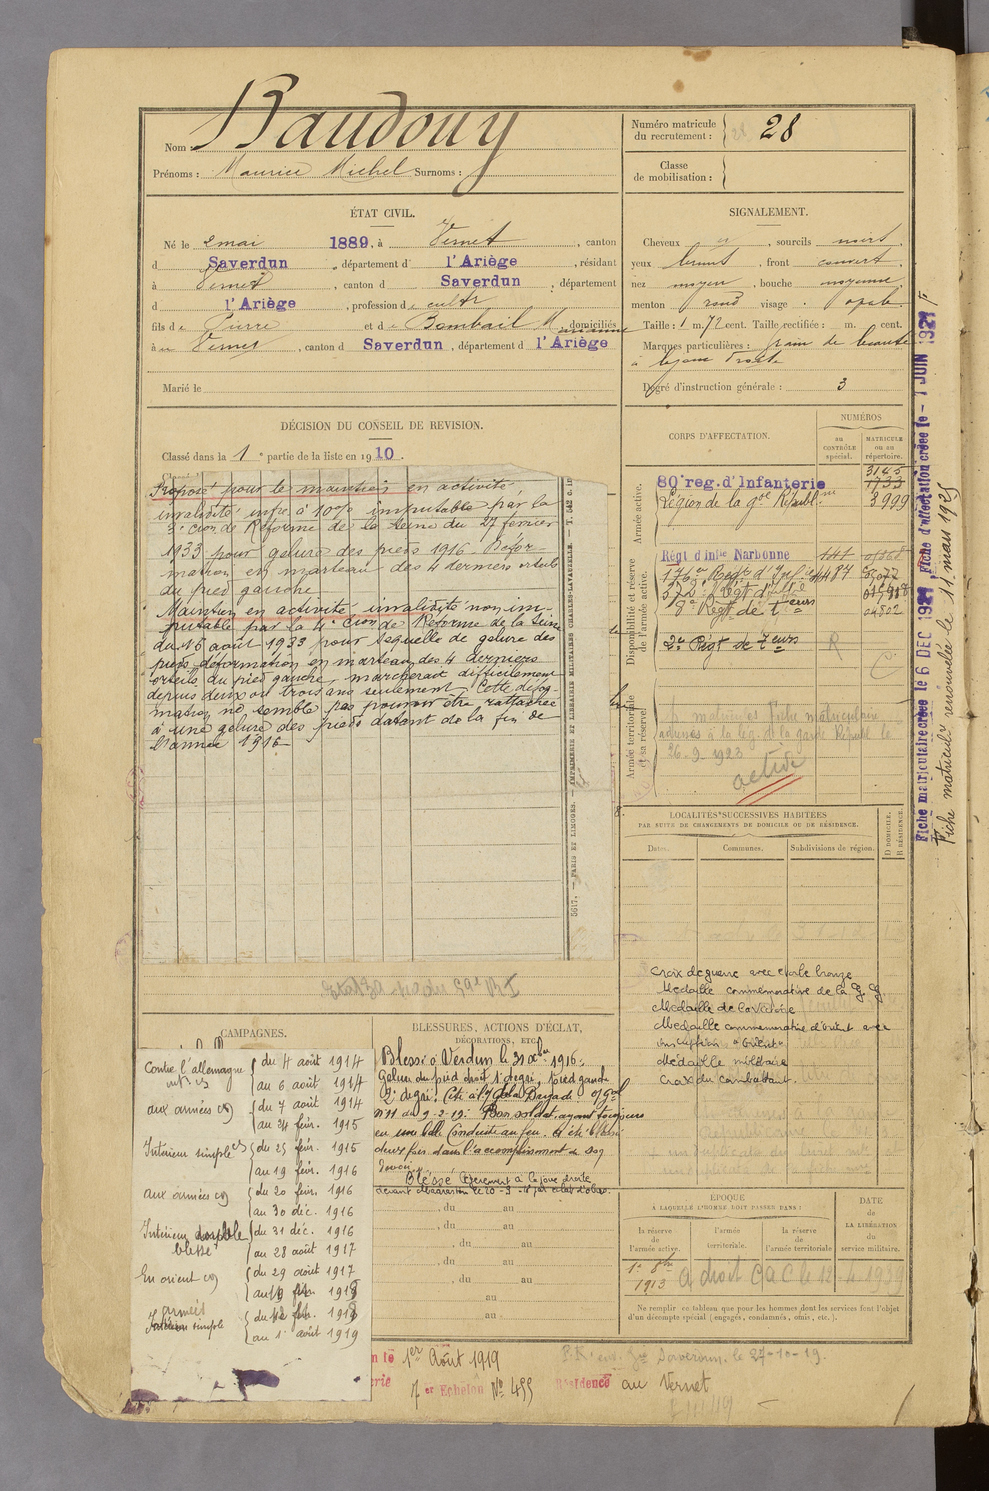 Nom Baudouy
Prénoms : Maurice Michel Surnoms :
Numéro matricule du recrutement : 28
Classe de mobilisation :
ÉTAT CIVIL.
Né le 2 mai 1889, à Vernet, canton
d Saverdun, département d l'Ariège, résidant
à Vernet, canton d Saverdun, département
d l'Ariège, profession de cultr
fils de Pierre et de Bombail Marianne domiciliés
à Vernet, canton d Saverdun, département d l'Ariège
Marié le
SIGNALEMENT.
Cheveux, sourcils noirs,
yeux bruns, front couvert,
nez moyen, bouche moyenne,
menton rond visage ovale
Taille : 1 m. 72 cent. Taille rectifiée : m. cent.
Marques particulières : grain de beauté
à la joue droite
Degré d'instruction générale : 3
DÉCISION DU CONSEIL DE REVISION.
Classé dans la 1e partie de la liste en 1910.
Proposé pour le maintien en activité
invalidité infre à 10% imputable par la
3e cion de Réforme de la Seine du 27 février
1933 pour gelure des pieds 1916. Défor-
mation en marteau des 4 derniers orteils
du pied gauche
Maintien en activité invalidité non im-
putable par la 4e cion de Réforme de la Seine
du 16 août 1933 pour séquelle de gelure des
pieds déformation en marteau des 4 derniers
orteils du pied gauche, marcherait difficilement
depuis deux ou trois ans seulement. Cette défor-
mation ne semble pas pouvoir être rattachée
à une gelure des pieds datant de la fin de
l'année 1916
5617. — PARIS ET LIMOGES. — IMPRIMERIE ET LIBRAIRIE MILITAIRES CHARLES-LAVAUZELLE.
CORPS D'AFFECTATION.
NUMÉROS
au CONTRÔLE spécial.
MATRICULE ou au répertoire.
Armée active.
80e reg. d'Infanterie
3145
1733
Légion de la gde Républne 3999
Disponibilité et réserve de l'armée active.
Régt d'Infie Narbonne 141
176e Régt d'Infie 487
372e Régt d'Infie
8e Régt de Teurs 04502
2e Régt de Teurs R
Armée territoriale et sa réserve
matricules fiche matriculaire
adressés à la lég. de la garde Républ le
26-9-1923
active
LOCALITÉS SUCCESSIVES HABITÉES
PAR SUITE DE CHANGEMENTS DE DOMICILE OU DE RÉSIDENCE.
Dates. Communes. Subdivisions de région. D DOMICILE. R RÉSIDENCE.
Croix de guerre avec étoile bronze
Médaille commémorative de la G. G.
Médaille de la Victoire
Médaille commémorative d'orient avec
inscription "Orient"
Médaille militaire
Croix du combattant.
CAMPAGNES.
Contre l'allemagne { du 4 août 1914
{ au 6 août 1914
aux armées { du 7 août 1914
{ au 24 févr. 1915
Intérieur simple { du 25 févr. 1915
{ au 19 févr. 1916
aux armées { du 20 févr. 1916
{ au 30 déc. 1916
Intérieur double { du 31 déc. 1916
blessé { au 28 août 1917
En orient { du 29 août 1917
{ au 1918
armées
Intérieur simple { du 1918
{ au 1er août 1919
BLESSURES, ACTIONS D'ÉCLAT,
DÉCORATIONS, ETC.
Blessé à Verdun le 31 Xbre 1916 :
Gelure du pied droit 1er degré, pied gauche
2e degré. Cité à l'O/ de la Brigade O/ Gal
N° 11 du 9-2-19 : Bon soldat, ayant toujours
eu une belle Conduite au feu. A été blessé
deux fois dans l'accomplissement de son
devoir.
Blessé légèrement à la joue droite
, du au
, du au
, du au
, du au
, du au
au
au
ÉPOQUE
À LAQUELLE L'HOMME DOIT PASSER DANS :
la réserve de l'armée active.
l'armée territoriale.
la réserve de l'armée territoriale
DATE de LA LIBÉRATION du service militaire.
1er 8bre 1913
a droit C a C le 12-4-1939
Ne remplir ce tableau que pour les hommes dont les services font l'objet
d'un décompte spécial (engagés, condamnés, omis, etc.).
1er Août 1919
7 er Echelon N° 499 Résidence au Vernet
Saverdun, le 27-10-19.
Fiche matriculaire créée le 6 DEC 1921, Fiche d'affectation créée le 1 JUIN 1921
Fiche matriculre renouvelée le 11 mars 1925